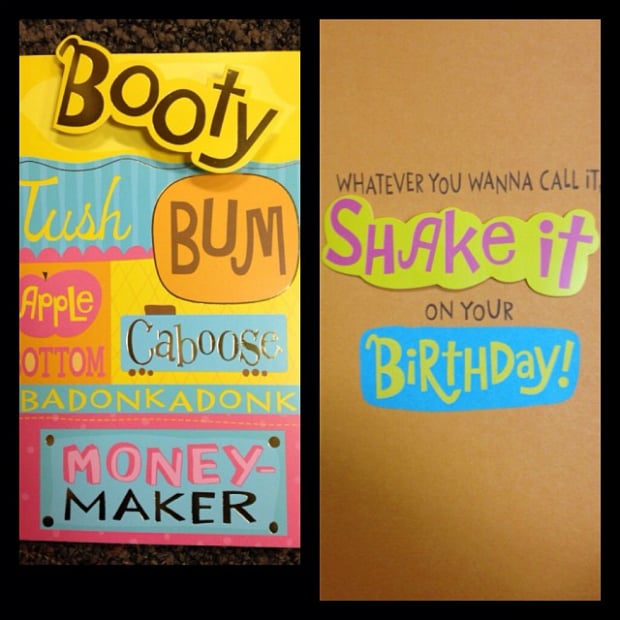 Booty
Tush
BUM
Apple
OTTOM
Caboose
BADONKADONK
MONEY-
MAKER
WHATEVER YOU WANNA CALL iT,
SHAKe it
ON YOUR
BiRtHDay!